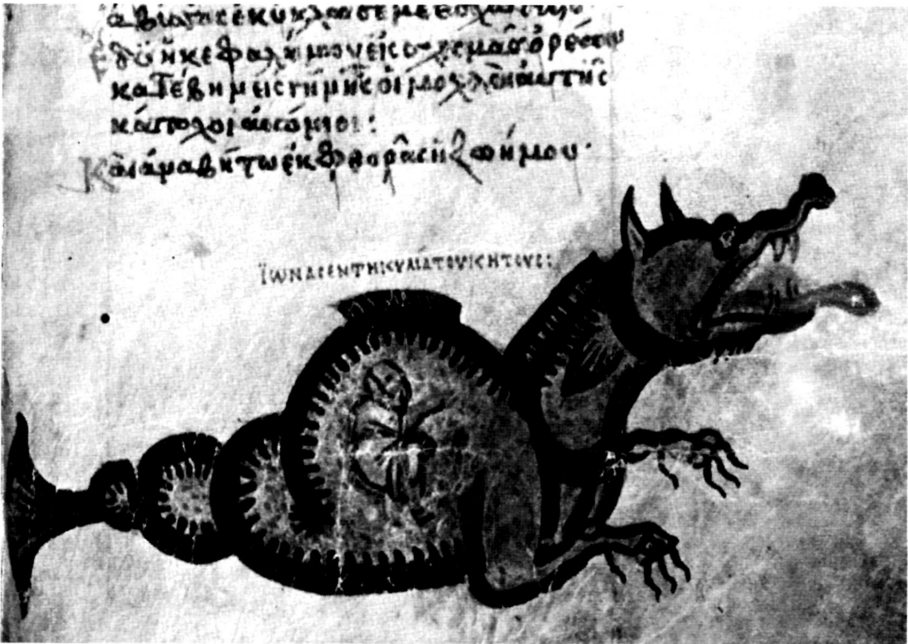 ἄβυσσος ἐκύκλωσέ με ἐσχάτη
ἔδυ ἡ κεφαλή μου εἰς σχισμὰς ὀρέων
κατέβην εἰς γῆν ἧς οἱ μοχλοὶ αὐτῆς
κάτοχοι αἰώνιοι:
Καὶ ἀναβήτω ἐκ φθορᾶς ἡ ζωή μου·
ΪΩΝΑC ΕΝ ΤΗ ΚΥΛΙΑ ΤΟΥ ΚΗΤΟΥC: